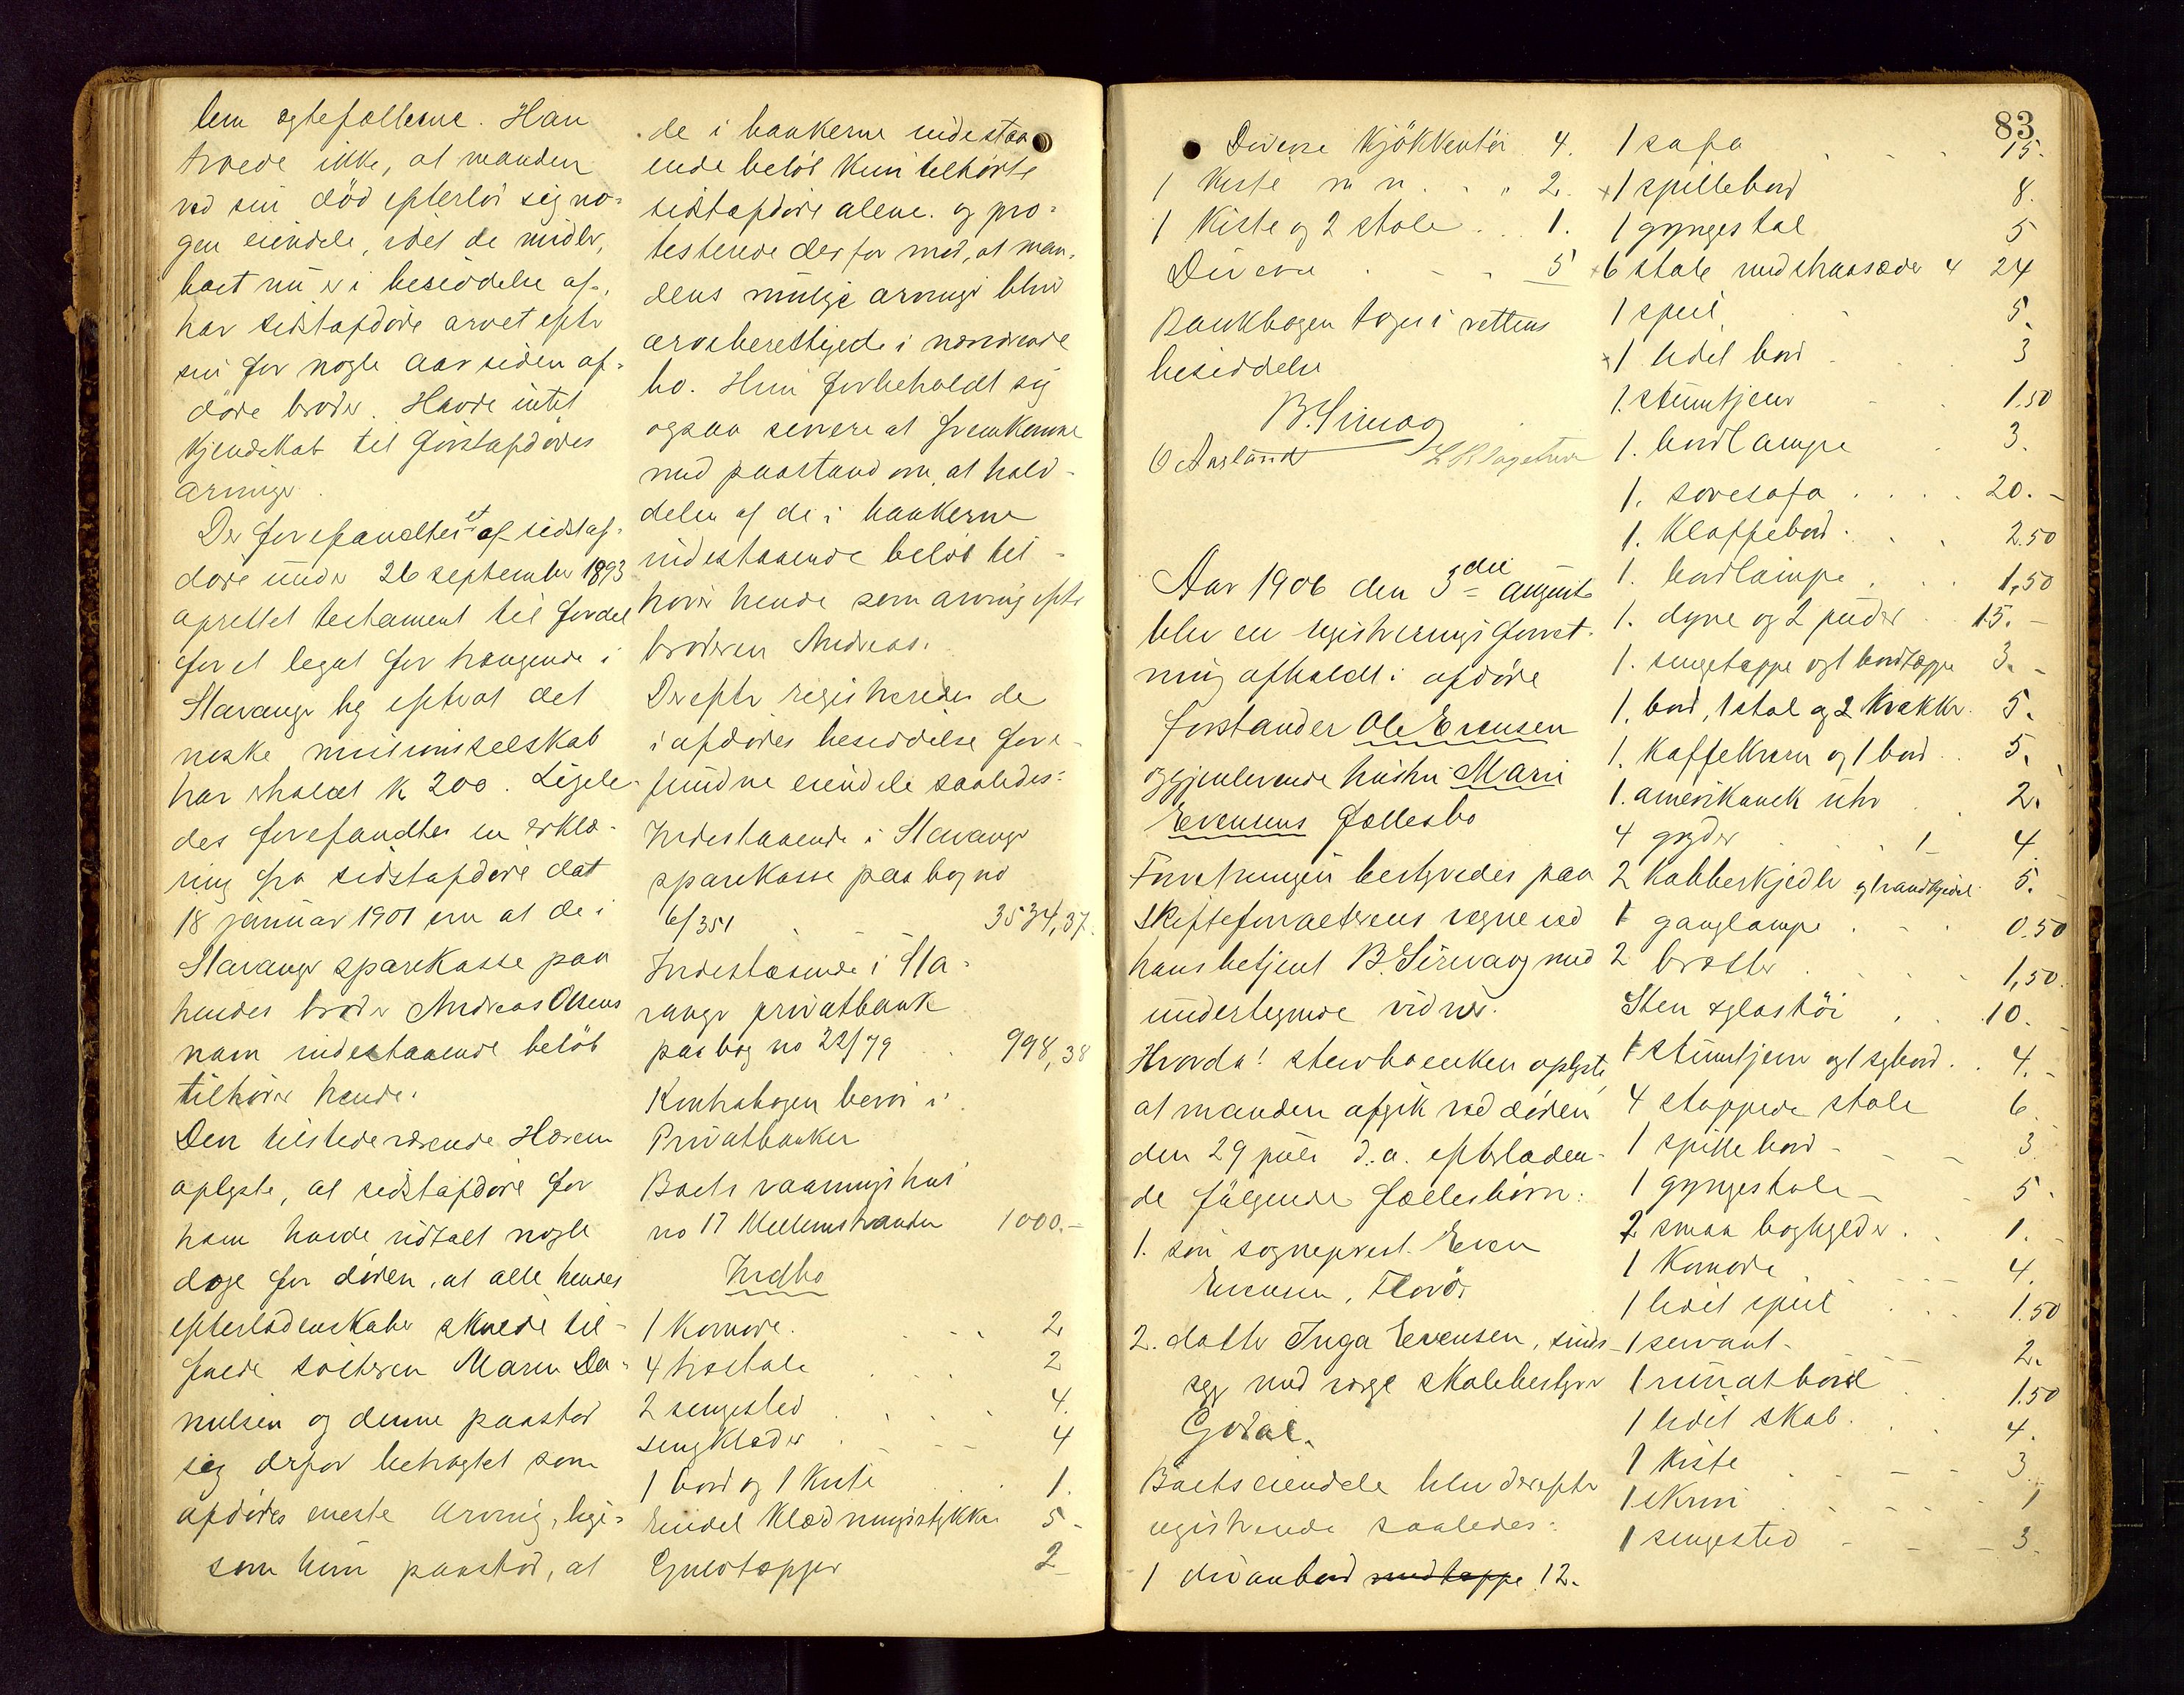 lem ægtefollerne. Han
troede ikke, at manden
ved sin död efterlod sig no-
gen eiendele, idet de midler,
boet nu er i besiddelse af,
har sidstafdöde arvet efter
sin for nogle aar siden af-
döde broder. Havde intet
kjendskab til förstafdödes
arvinger.
Der forefandtes et af sidstaf-
döde under 26 september 1893
oprettet testament til fordel
for et legat for trængende i
Stavanger by efterat det
norske missionsselskab
har erholdt k 200. Ligele-
des forefandtes en erklæ-
ring fra sidstafdöde dat
18 januar 1901 om at de i
Stavanger sparekasse paa
hendes broder Andreas Olsens
navn indestaaende belöb
tilhörer hende.
Den tilstedeværende
oplyste, at sidstafdöde for
ham havde udtalt nogle
dage for döden, at alle hendes
efterladenskaber skulde til-
falde södteren Maren Da-
nielsen og denne paastod
sig derfor betragtet som
afdödes eneste arving, lige-
som hun paastod, at
de i bankerne indestaa
ende belöb kun tilhörte
sidstafdöde alene. og pro-
testerede derfor mod, at man-
dens mulige arvinger blev
arveberettigede i nærværende
bo. Hun forbeholdt sig
ogsaa senere at fremkomme
med paastand om, at halv-
delen af de i bankerne
indestaaende belöb til-
hörer hende som arving efter
broderen Andreas.
Derefter registreredes de
i afdödes besiddelse fore-
fundne eiendele saaledes:
Indestaaende i Stavanger
sparekasse paa bog no
6/351 . . 3534,37.
Indestaaende i Sta-
vanger privatbank
paa bog no 22/79 . 998,38
Kontrabogen beror i
Privatbanken
Boets vaaningshus
no 17 Mellemstranden 1000.-
Indbo
1 Komode . . . . 2
4 træstole . . . 2
2 sengested . . . 4.
sengklæder . . . 4
1 bord og 1 kiste . . 1.
Endel klædningsstykker 5-
Gulvtæpper 2
83
Diverse kjökkentöi 4.
1 kiste m n . . . 2.
1 Kiste og 2 stole . . 1.
Diverse . . . 5
Bankbogen toges i rettens
besiddelse
B. Sirevaag
O Aasland
Aar 1906 den 3die august
blev en registreringsforret-
ning afholdt i afdöde
forstander Ole Evensen
og gjenlevende hustru Mari
Evensens fællesbo
Forretningen bestyredes paa
skifteforvalterens vegne ved
hans betjent B. Sirevaag med
undertegnede vidner.
Hvorda! sterboenken oplyste
at manden afgik ved döden
den 29 juli d.a. efterladen-
de fölgende fællesbörn:
1. sön sogneprest Even
Evensen, Florö.
2. datter Inga Evensen, sinds-
syg med værge skolebestyrer
Godal.
Boets eiendele blev derefter
registrerede saaledes:
1 divanbord med tæppe 12.
1 sofa . . . 15.
x 1 spillebord 8.
1 gyngestol 5
x 6 stole med straasæder 4 24
1 speil . . 5.
x 1 lidet bord . . 3
1. stumtjener . . 1.50
1. bordlampe . 3.
1. sovesofa . . . . 20.-
1. Klaffebord . . . 2.50
1. bordlampe . . . 1,50
1. dyne og 2 puder . . 15.-
1. sengetæppe og 1 bordtæppe 3.-
1. bord, 1 stol og 2 krakker 5.
1. kaffekvern og 1 bord . . 5.
1. amerikansk uhr . 2.
4 gryder . . . 1 4.
2 kobberkjedler og 5.
1 ganglampe . . . 0.50
2 bretter . . . . 1,50.
Sten & glastöi . . . 10.
1 stumtjener og 1 sybord . . 4.-
4 stoppede stole 6.
1 spillebord - - - 3
1 gyngestole - - 5.
2 smaa boghylder . . 1.
1 Komode . . - - 4.
1 lidet speil . . . 1.50
1 servant - - - 2.
1 bord . . 1.50
1 lidet skab . . . 4.
1 kiste . - - - 3
1 skrin . - - - 1
1 sengested - - - 3.